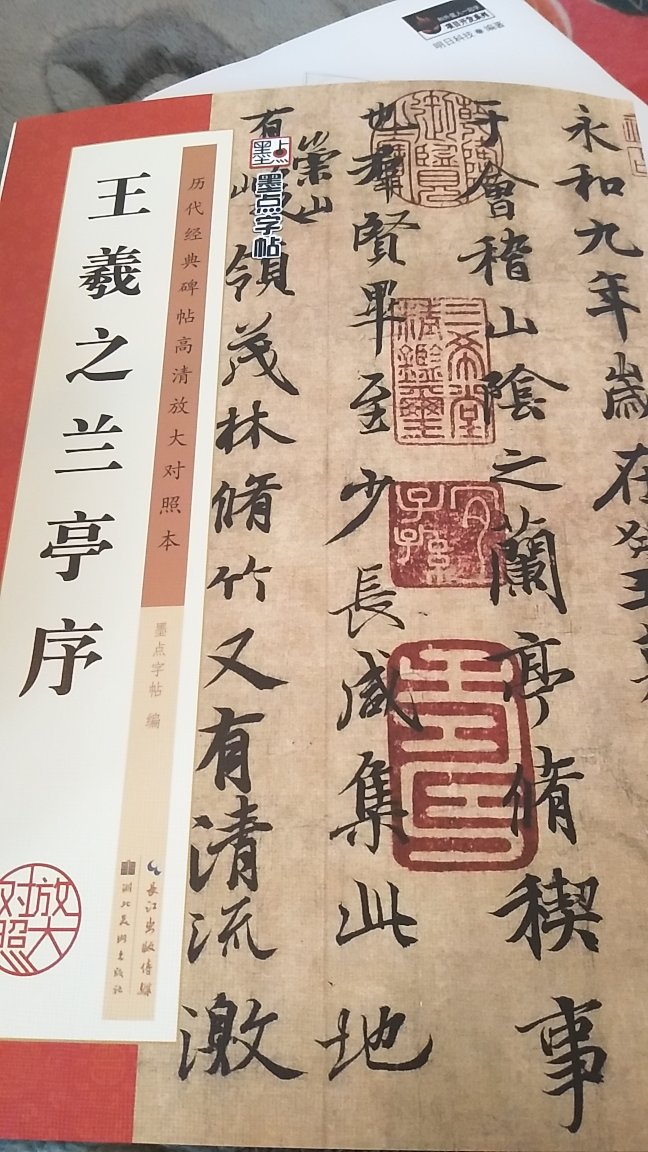 明日科技 ● 编著
王羲之兰亭序
历代经典碑帖高清放大对照本
墨点字帖 编
长江出版传媒
湖北美术出版社
放大对照
墨点
墨点字帖
永和九年歲在癸丑
于會稽山陰之蘭亭脩稧事
也羣賢畢至少長咸集此地
有崇山
領茂林脩竹又有清流激
三希堂精鑑璽
宜子孫